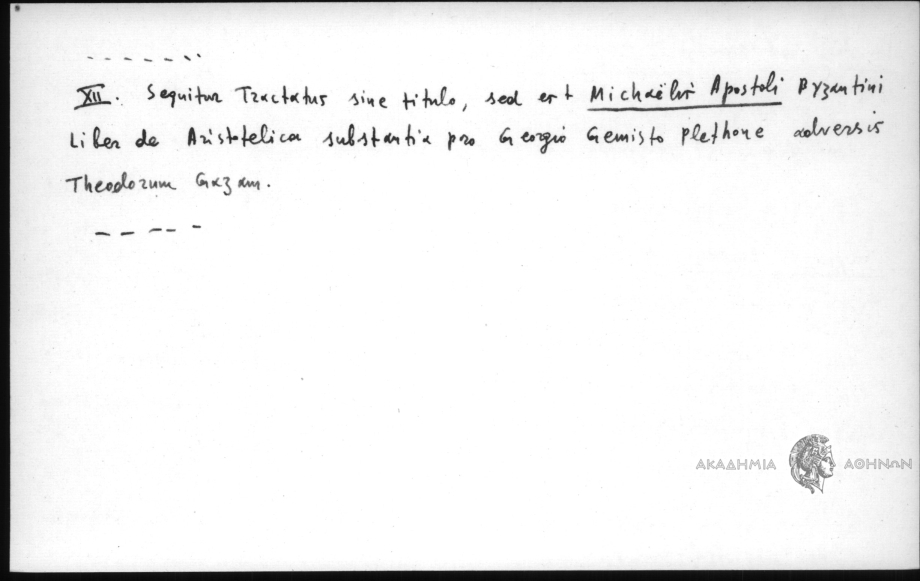 - - - - - - -
XII. Sequitur Tractatus sine titulo, sed est Michaëlis Apostoli Byzantini
Liber de Aristotelica substantia pro Georgio Gemisto Plethone adversis
Theodorum Gazam.
- - - - -
ΑΚΑΔΗΜΙΑ ΑΘΗΝΩΝ